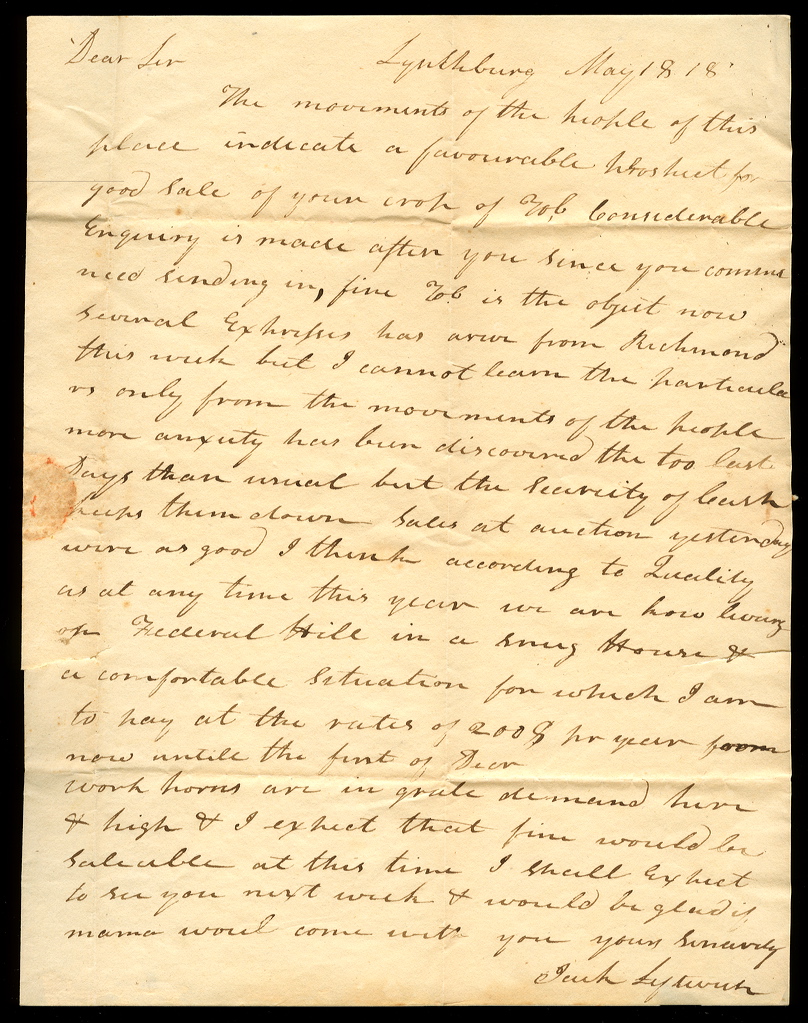 Dear Sir Lynchburg May 18 18
The movements of the people of this
place indicate a favourable Prospect for
good sale of your crop of Tob. Considerable
Enquiry is made after you since you comme
nced sending in, fine Tob is the object now
several Expresses has arive from Richmond
this week but I cannot learn the particula
rs only from the movements of the people
more anxiety has been discovered the too last
Days than usual but the Scarcity of Cash
keeps them down Sales at auction yesterday
were as good I think according to Quality
as at any time this year we are now living
on Federal Hill in a snug House &
a comfortable situation for which I am
to pay at the rates of 200$ pr year from
now untile the first of Decr
work horses are in grate demand here
& high & I expect that fine would be
saleable at this time I shall Expect
to see you next week & would be glad if
mama woul come with you yours sincerely
Jack